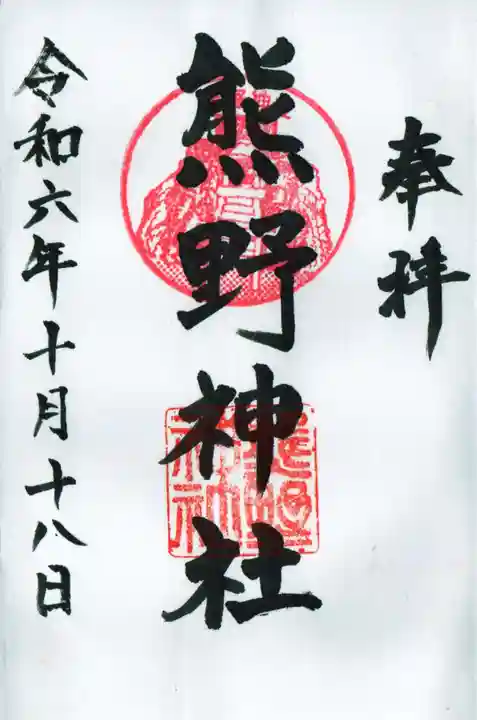 奉拝
熊野神社
令和六年十月十八日